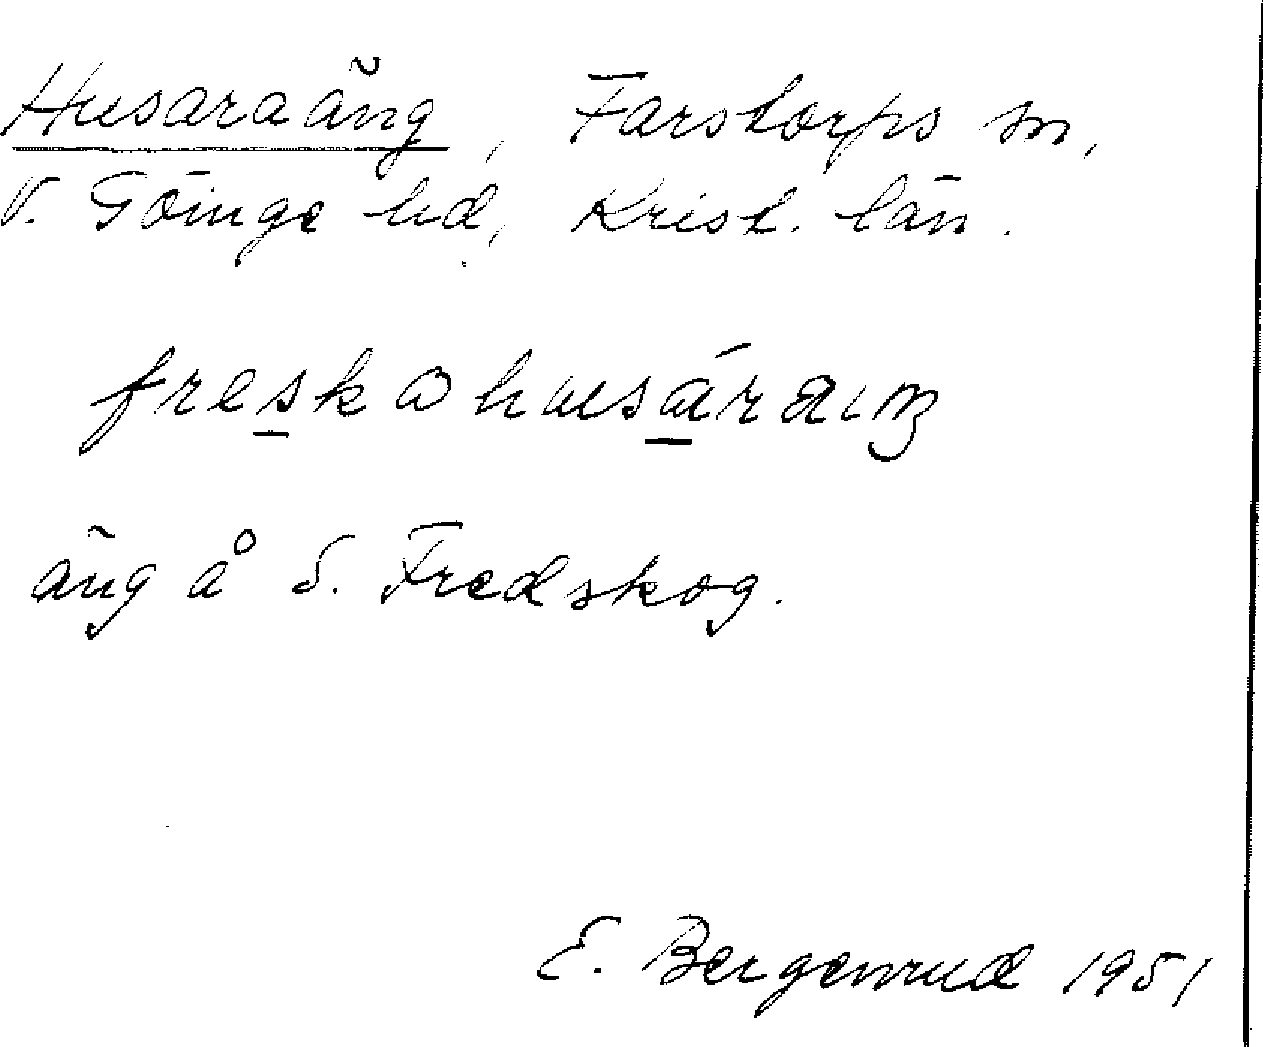 Husaraäng, Farstorps sn,
V. Göinge hd, Krist. län.
freskahusáraıŋ
äng å S. Fredskog.
E. Bergenrud 1951